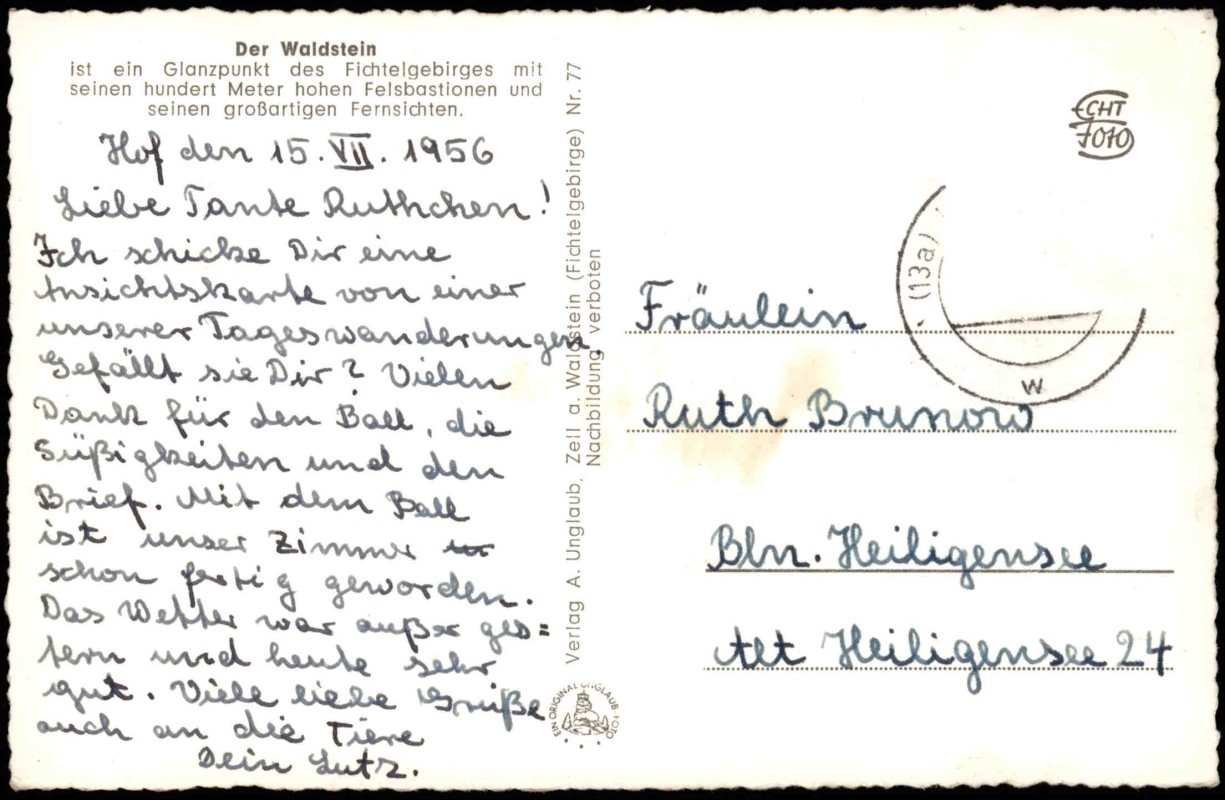 Der Waldstein
ist ein Glanzpunkt des Fichtelgebirges mit
seinen hundert Meter hohen Felsbastionen und
seinen großartigen Fernsichten.
Hof den 15. VII. 1956
Liebe Tante Ruthchen!
Ich schicke Dir eine
Ansichtskarte von einer
unserer Tageswanderungen
Gefällt sie Dir? Vielen
Dank für den Ball, die
Süßigkeiten und den
Brief. Mit dem Ball
ist unser Zimmer
schon fertig geworden.
Das Wetter war außer ges=
tern und heute sehr
gut. Viele liebe Grüße
auch an die Tiere
Dein Lutz.
Verlag A. Unglaub, Zell a. Waldstein (Fichtelgebirge) Nr. 77
Nachbildung verboten
EIN ORIGINAL UNGLAUB FOTO
ECHT
FOTO
(13a)
W
Fräulein
Ruth Brunow
Bln. Heiligensee
Alt Heiligensee 24